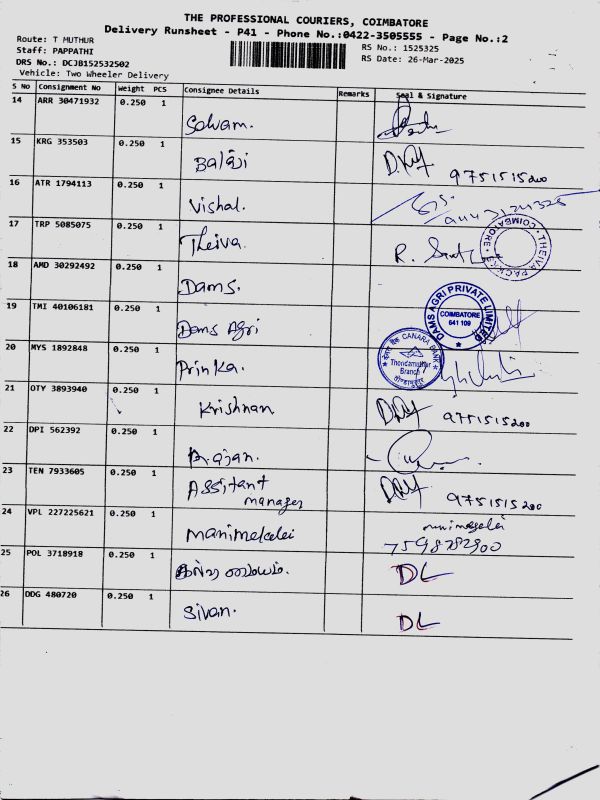 THE PROFESSIONAL COURIERS, COIMBATORE
Delivery Runsheet - P41 - Phone No.:0422-3505555 - Page No.:2
Route: T MUTHUR
Staff: PAPPATHI
RS No.: 1525325
DRS No.: DCJB152532502
RS Date: 26-Mar-2025
Vehicle: Two Wheeler Delivery
S No Consignment No Weight PCS Consignee Details Remarks Seal & Signature
14 ARR 30471932 0.250 1
Selvam.
15 KRG 353503 0.250 1
Balaji 9751515200
16 ATR 1794113 0.250 1
Vishal.
17 TRP 5085075 0.250 1
Theiva. R.
THEIVA PACKAGE COIMBATORE
18 AMD 30292492 0.250 1
Dams.
19 TMI 40106181 0.250 1
Dams Agri
DAMS AGRI PRIVATE LIMITED
COIMBATORE
641 109
20 MYS 1892848 0.250 1
Prinka.
CANARA BANK
Thondamuthur
Branch
21 OTY 3893940 0.250 1
Krishnan 9751515200
22 DPI 562392 0.250 1
Rajan.
23 TEN 7933605 0.250 1
Assitant
manager 9751515200
24 VPL 227225621 0.250 1
manimekalai
25 POL 3718918 0.250 1
DL
26 DDG 480720 0.250 1
Sivan. DL